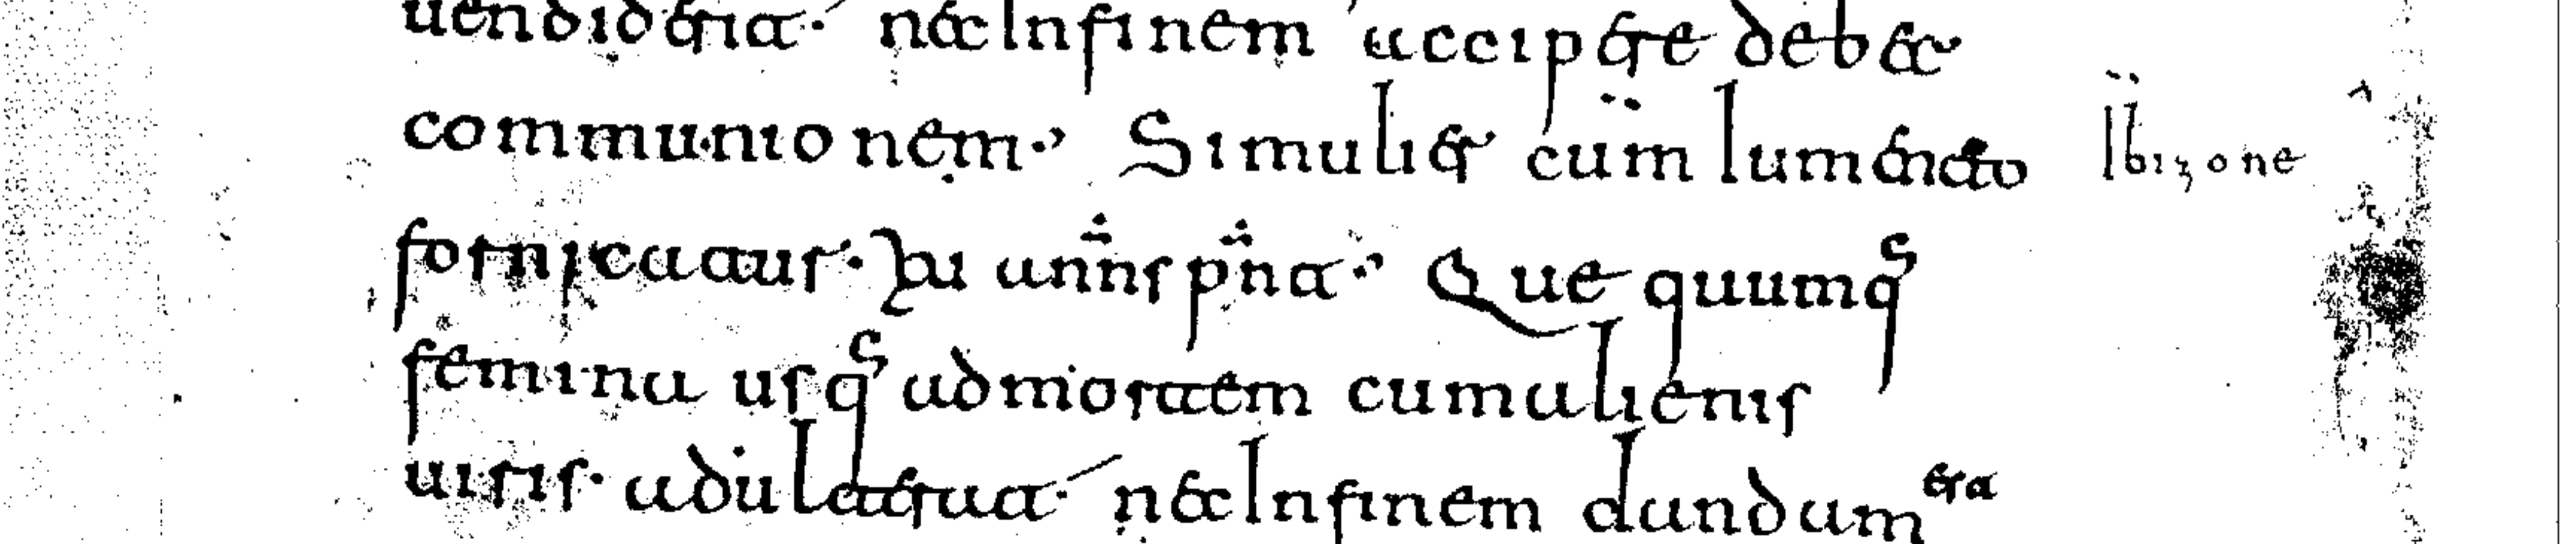 uendiderit nec In finem accipere debet
communionem Similiter cum Iumento lbizone
fornicatus XU anns pnt Que quumq
femina usq ad mortem cum alienis
uiris adulterat nec In finem dandum est